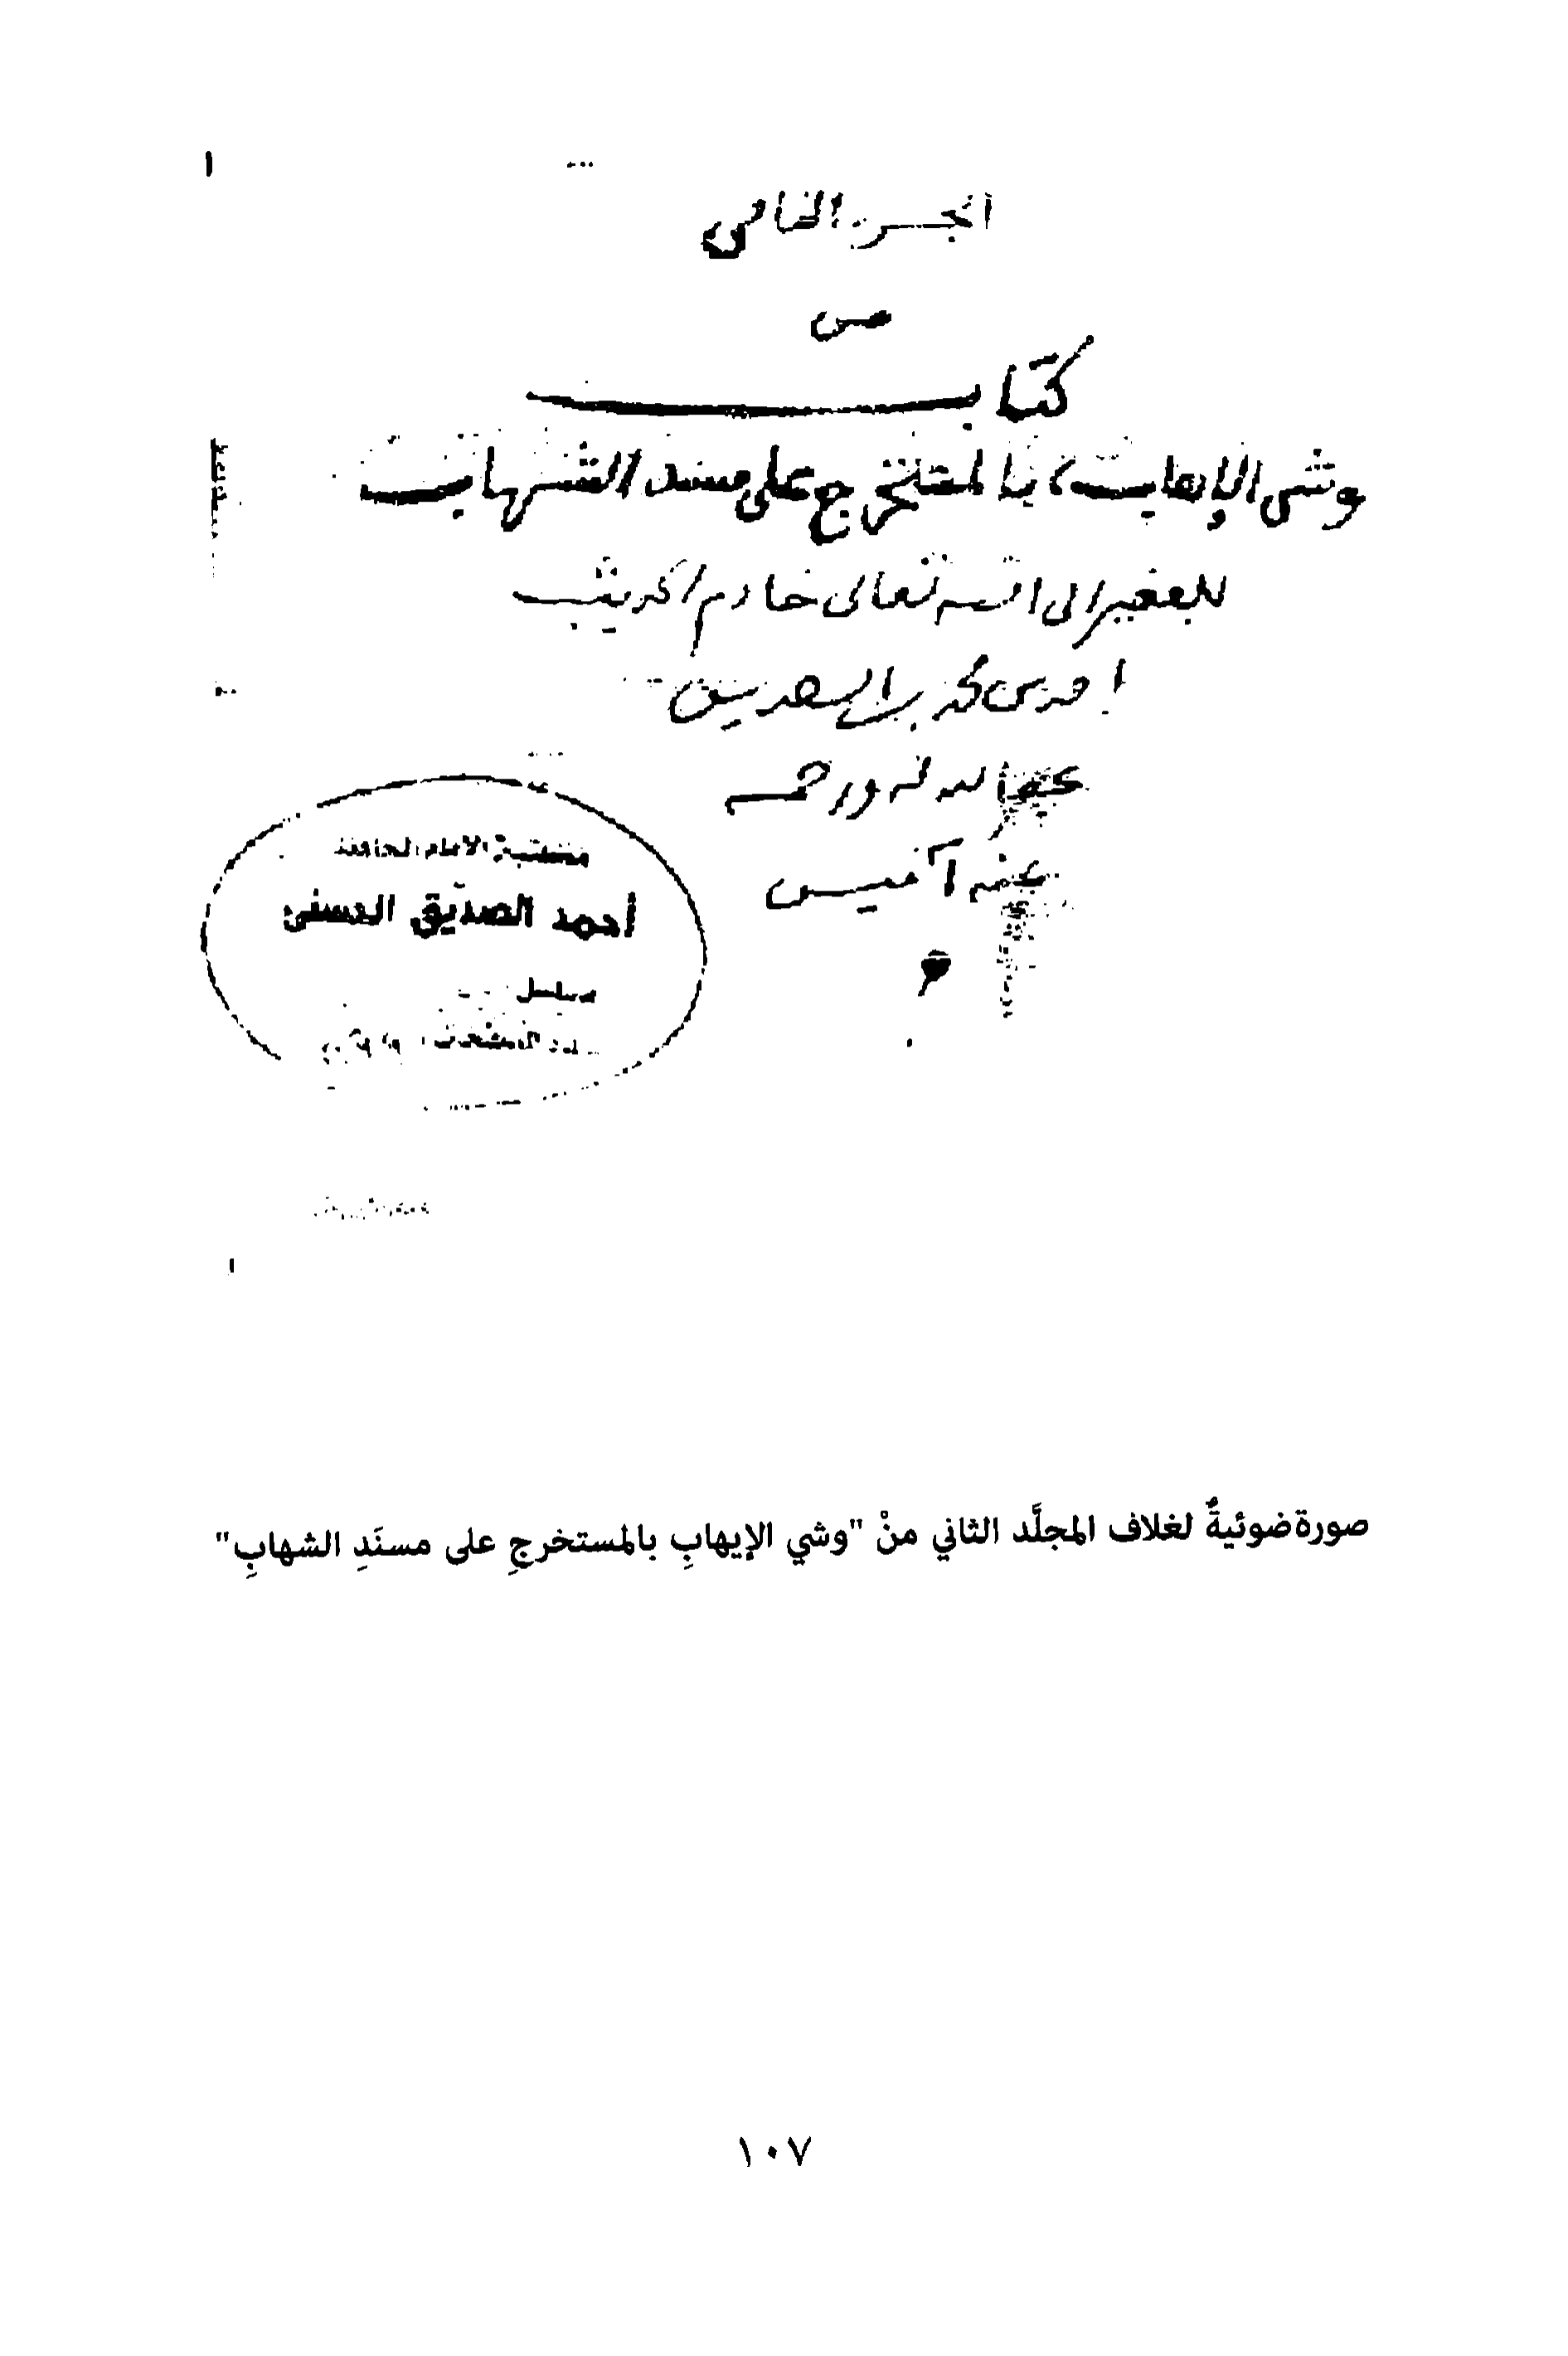 الجزء الخامس
من
كتاب
وشى الإهاب، بالمستخرج على مسند الشهاب
للفقير الى الله تعالى خادم الحديث
احمد بن محمد بن الصديق
غفر الله له ورحمه
بمنه آمين
مكتبة الامام الحافظ
أحمد الصديق الحسني
مسلسل
عدد الصفحات
صورة ضوئيةٌ لغلاف المجلَّد الثاني منْ "وشي الإيهابِ بالمستخرجِ على مسنَدِ الشهابِ"
١٠٧